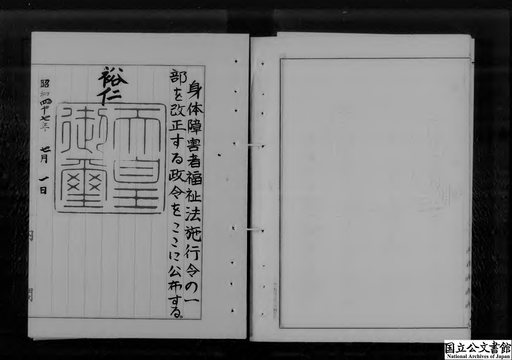 身体障害者福祉法施行令の一
部を改正する政令をここに公布する。
裕仁
天皇
御璽
昭和四十七年 七月 一日
内閣
国立公文書館
National Archives of Japan